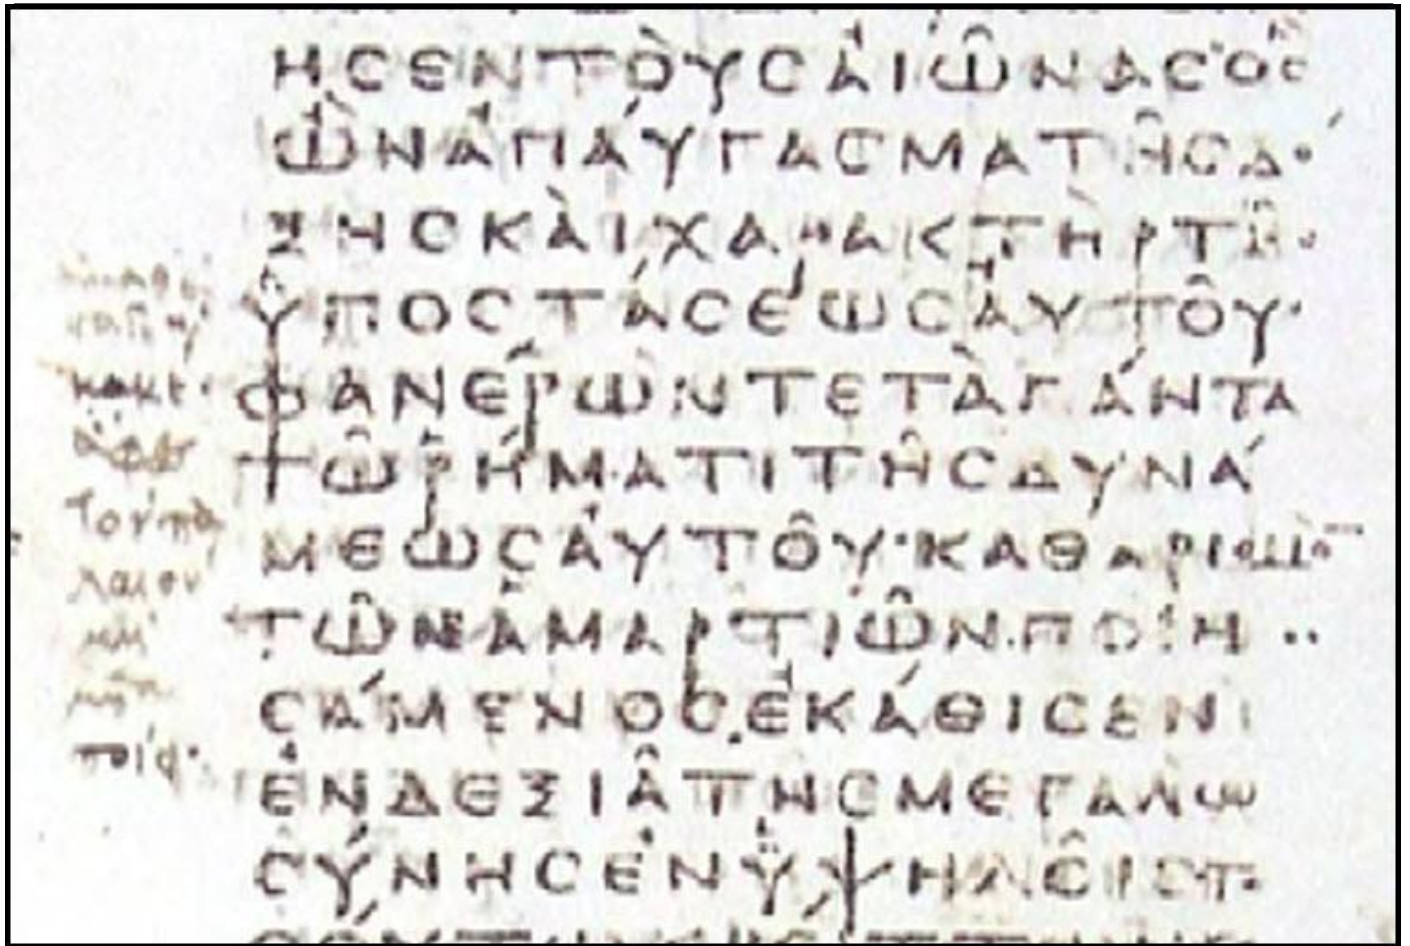 ΗϹΕΝΤΟῪϹἈΙῶΝΑϹὋϹ
ὪΝἈΠΑΎΓΑϹΜΑΤΗ͂ϹΔΌ
ΞΗϹΚᾺΙΧΑΡΑΚΤῊΡΤΗ͂Ϲ
ὙΠΟϹΤΆϹΕΩϹἈΥΤΟΥ͂·
ΦΑΝΕΡῺΝΤΕΤᾺΠΆΝΤΑ
ΤΩ͂ῬΉΜΑΤΙΤΗ͂ϹΔΥΝΆ
ΜΕΩϹἈΥΤΟΥ͂·ΚΑΘΑΡΙϹΜΟ̅
ΤΩ͂ΝἉΜΑΡΤΙΩ͂Ν·ΠΟΙΗ
ϹΆΜΕΝΟϹἘΚΆΘΙϹΕΝ
ἘΝΔΕΞΙΑ͂ΤΗ͂ϹΜΕΓΑΛΩ
ϹΎΝΗϹἘΝὙΨΗΛΟΙ͂ϹΤΟ
κακέ·
ἄφες
τὸν πα
λαιον
μὴ
ποίει·